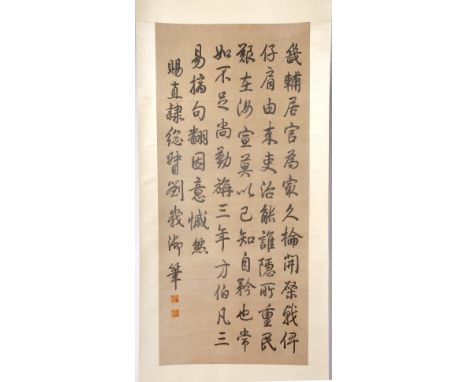 畿輔居官為最久掄開棨戟俾
仔肩由來吏治能誰隱所重民
艱在汝宣莫以己知自矜也常
如不足尚勤旃三年方伯凡三
易摛句翻因意慽然
賜直隸總督劉峩御筆